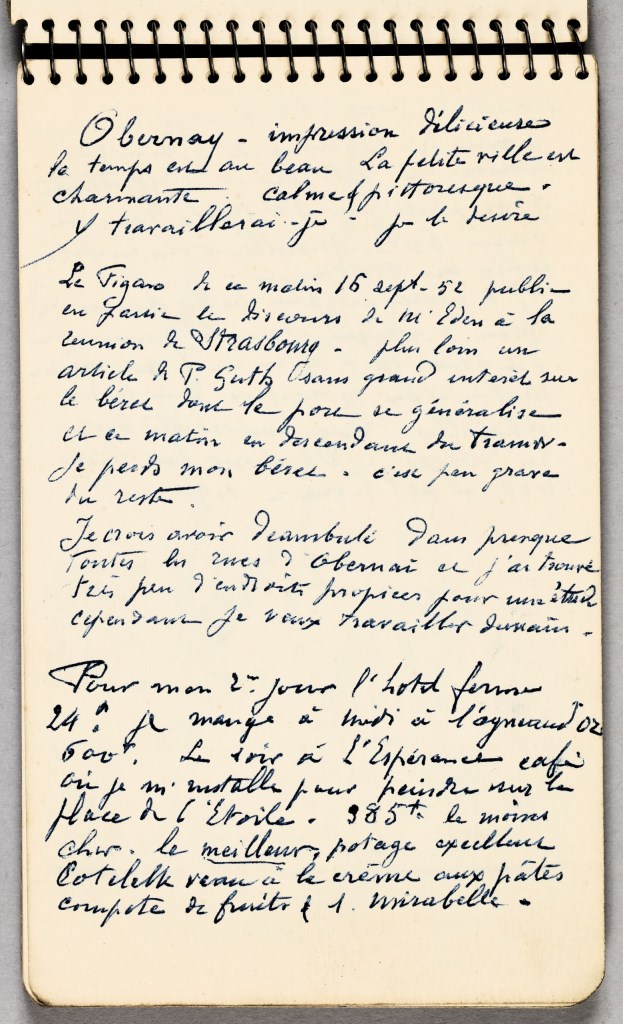 Obernay - impression délicieuse
le temps est au beau La petite ville est
charmante. calme & pittoresque.
y travaillerai-je - je le désire
Le Figaro de ce matin 16 sept. 52 publie
en partie le discours de Mr Eden à la
reunion de Strasbourg - plus loin un
article de P. Guth sans grand interet sur
le béret dont le port se généralise
et ce matin en descendant du tramw-
je perds mon béret. c'est peu grave
du reste.
Je crois avoir deambulé dans presque
toutes les rues d'Obernai et j'ai trouvé
très peu d'endroits propices pour une étude
cependant je veux travailler demain.
Pour mon 2e jour l'hotel ferme
24 h. je mange à midi à l'agneau d'or
500f. Le soir à l'Espérance café
où je m'installe pour peindre sur la
place de l'Etoile. 385f le moins
cher. le meilleur, potage excellent
Cotelette veau à la crème aux pâtes
compote de fruits & 1. mirabelle.